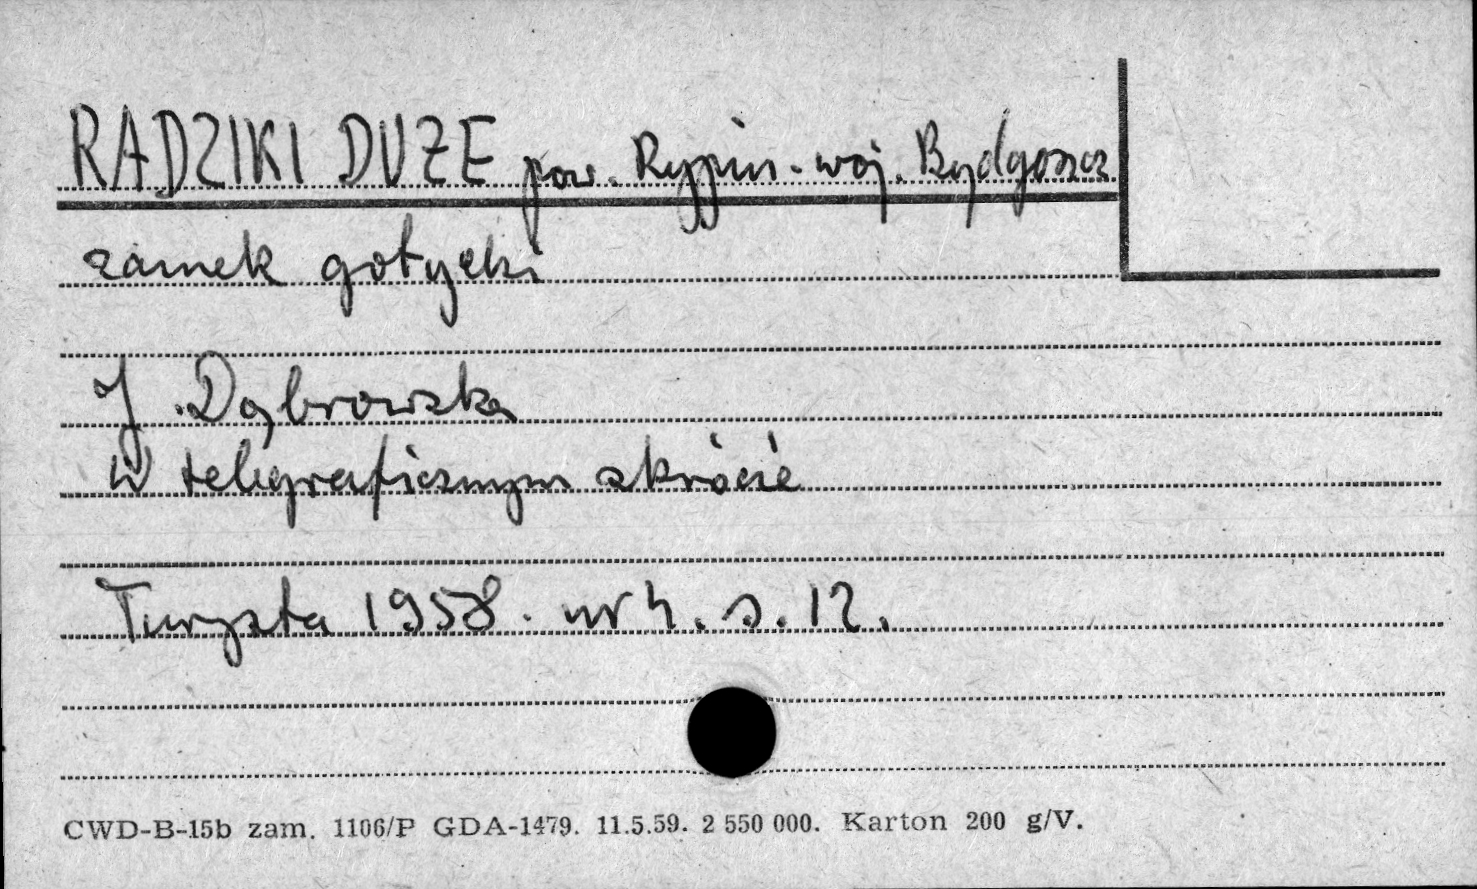 RADZIKI DUŻE pow. Rypin. woj. Bydgoszcz
zamek gotycki
J. Dąbrowska
W telegraficznym skrócie
Turysta 1958. nr 4. s. 12.
CWD-B-15b zam. 1106/P GDA-1479. 11.5.59. 2 550 000. Karton 200 g/V.